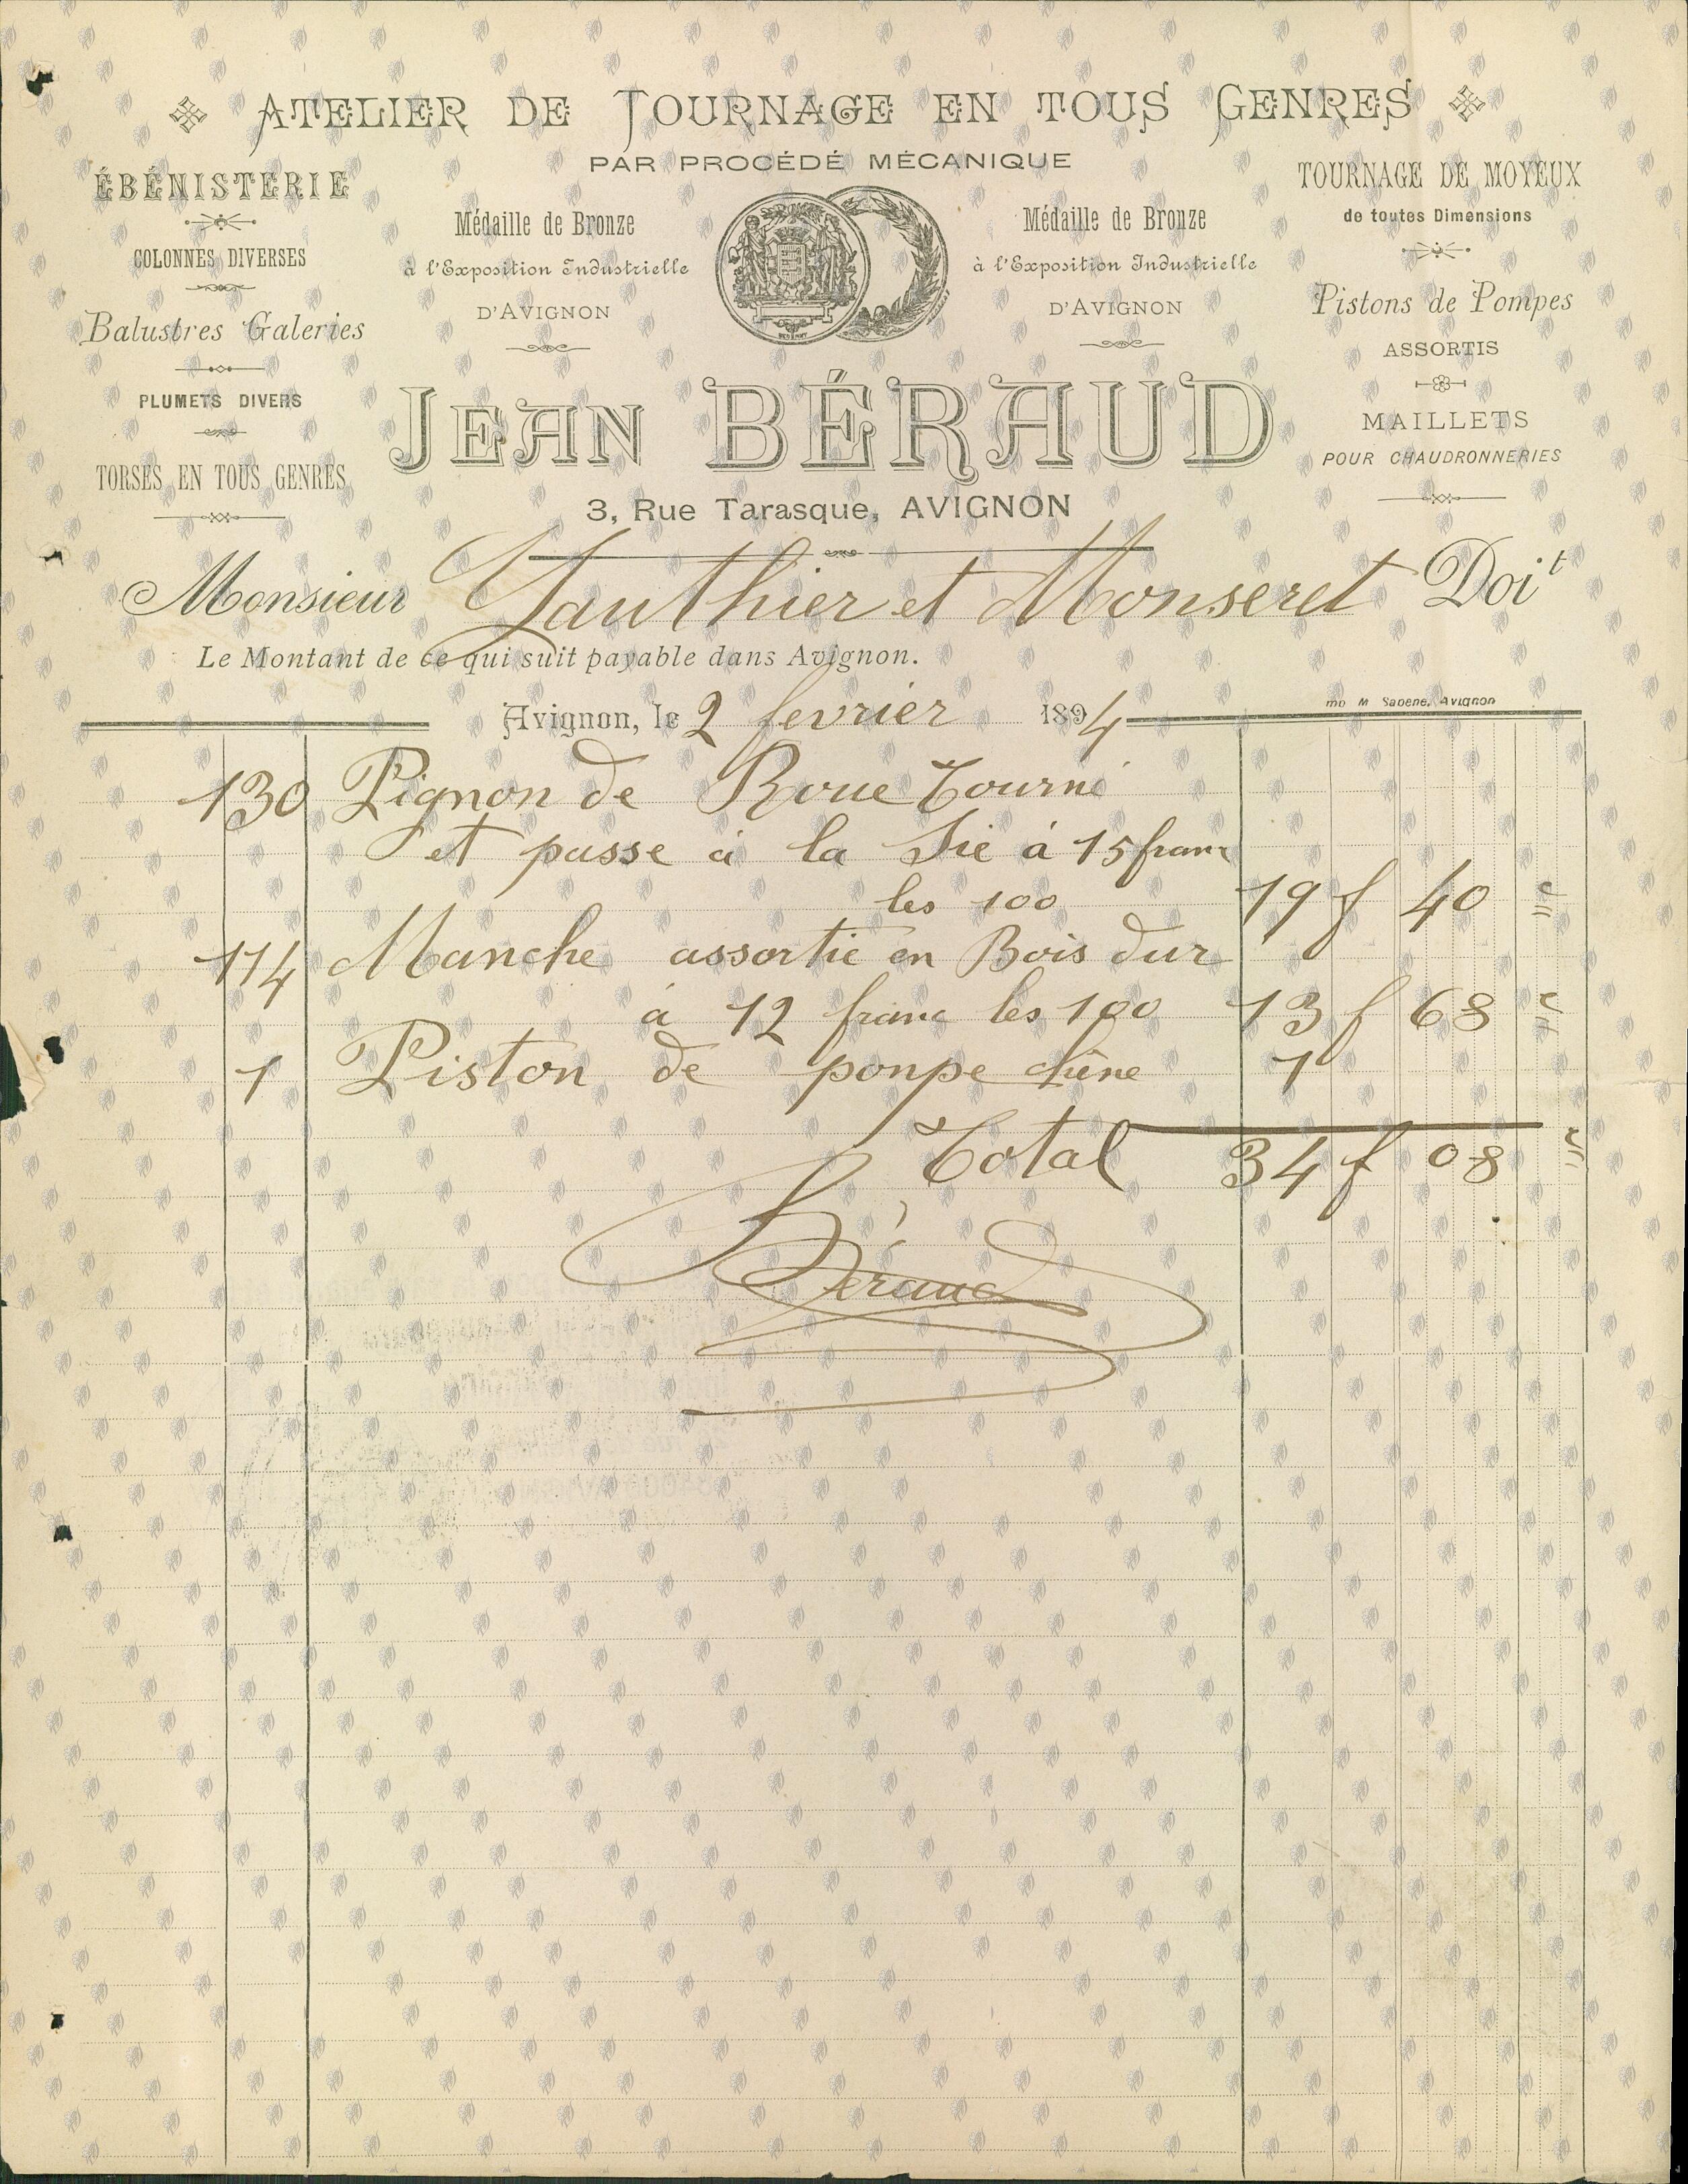 ATELIER DE TOURNAGE EN TOUS GENRES
PAR PROCÉDÉ MÉCANIQUE
ÉBÉNISTERIE
COLONNES DIVERSES
Balustres Galeries
PLUMETS DIVERS
TORSES EN TOUS GENRES
Médaille de Bronze
à l'Exposition Industrielle
D'AVIGNON
Médaille de Bronze
à l'Exposition Industrielle
D'AVIGNON
TOURNAGE DE MOYEUX
de toutes Dimensions
Pistons de Pompes
ASSORTIS
MAILLETS
POUR CHAUDRONNERIES
JEAN BÉRAUD
3, Rue Tarasque, AVIGNON
Monsieur Gauthier et Monseret Doit
Le Montant de ce qui suit payable dans Avignon.
Avignon, le 2 fevrier 1894
Imp M Sapene, Avignon
130 Pignon de Roue Tourné
et passe à la Sie à 15 franc
les 100 19 f 40 c
114 Manche assortie en Bois dur
à 12 franc les 100 13 f 68 c
1 Piston de ponpe chêne 1
Total 34 f 08 c
Béraud